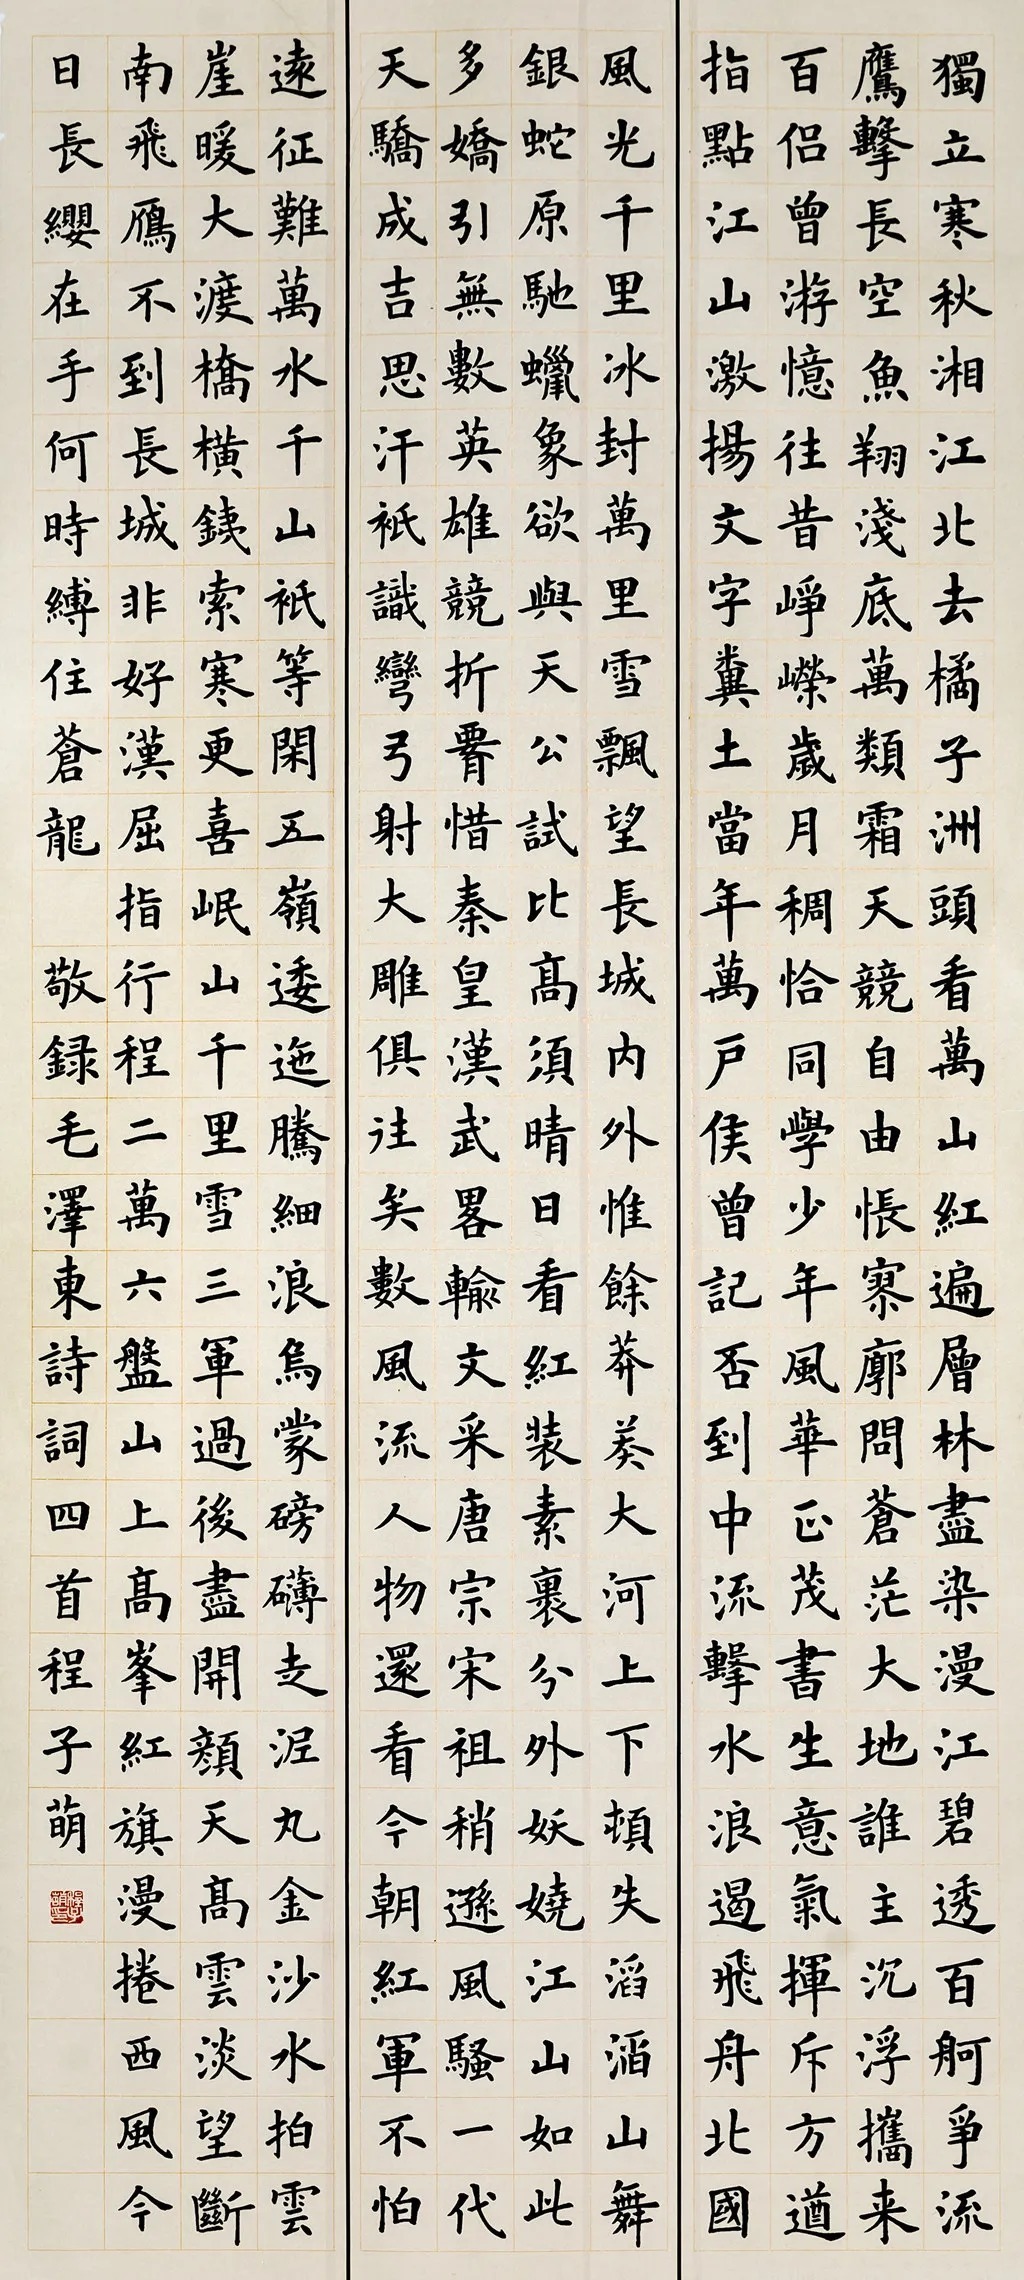 獨立寒秋湘江北去橘子洲頭看萬山紅遍層林盡染漫江碧透百舸爭流
鷹擊長空魚翔淺底萬類霜天競自由悵寥廓問蒼茫大地誰主沉浮攜来
百侣曾游憶往昔崢嶸歲月稠恰同學少年風華正茂書生意氣揮斥方遒
指點江山激揚文字糞土當年萬户侯曾記否到中流擊水浪遏飛舟北國
風光千里冰封萬里雪飄望長城内外惟餘莽莽大河上下頓失滔滔山舞
銀蛇原馳蠟象欲與天公試比高須晴日看紅装素裹分外妖嬈江山如此
多嬌引無數英雄競折腰惜秦皇漢武畧輸文采唐宗宋祖稍遜風騷一代
天驕成吉思汗衹識彎弓射大雕俱往矣數風流人物還看今朝紅軍不怕
遠征難萬水千山衹等閑五嶺逶迤騰細浪烏蒙磅礴走泥丸金沙水拍雲
崖暖大渡橋橫鐵索寒更喜岷山千里雪三軍過後盡開顏天高雲淡望斷
南飛鴈不到長城非好漢屈指行程二萬六盤山上高峯紅旗漫捲西風今
日長纓在手何時縛住蒼龍 敬録毛澤東詩詞四首程子萌